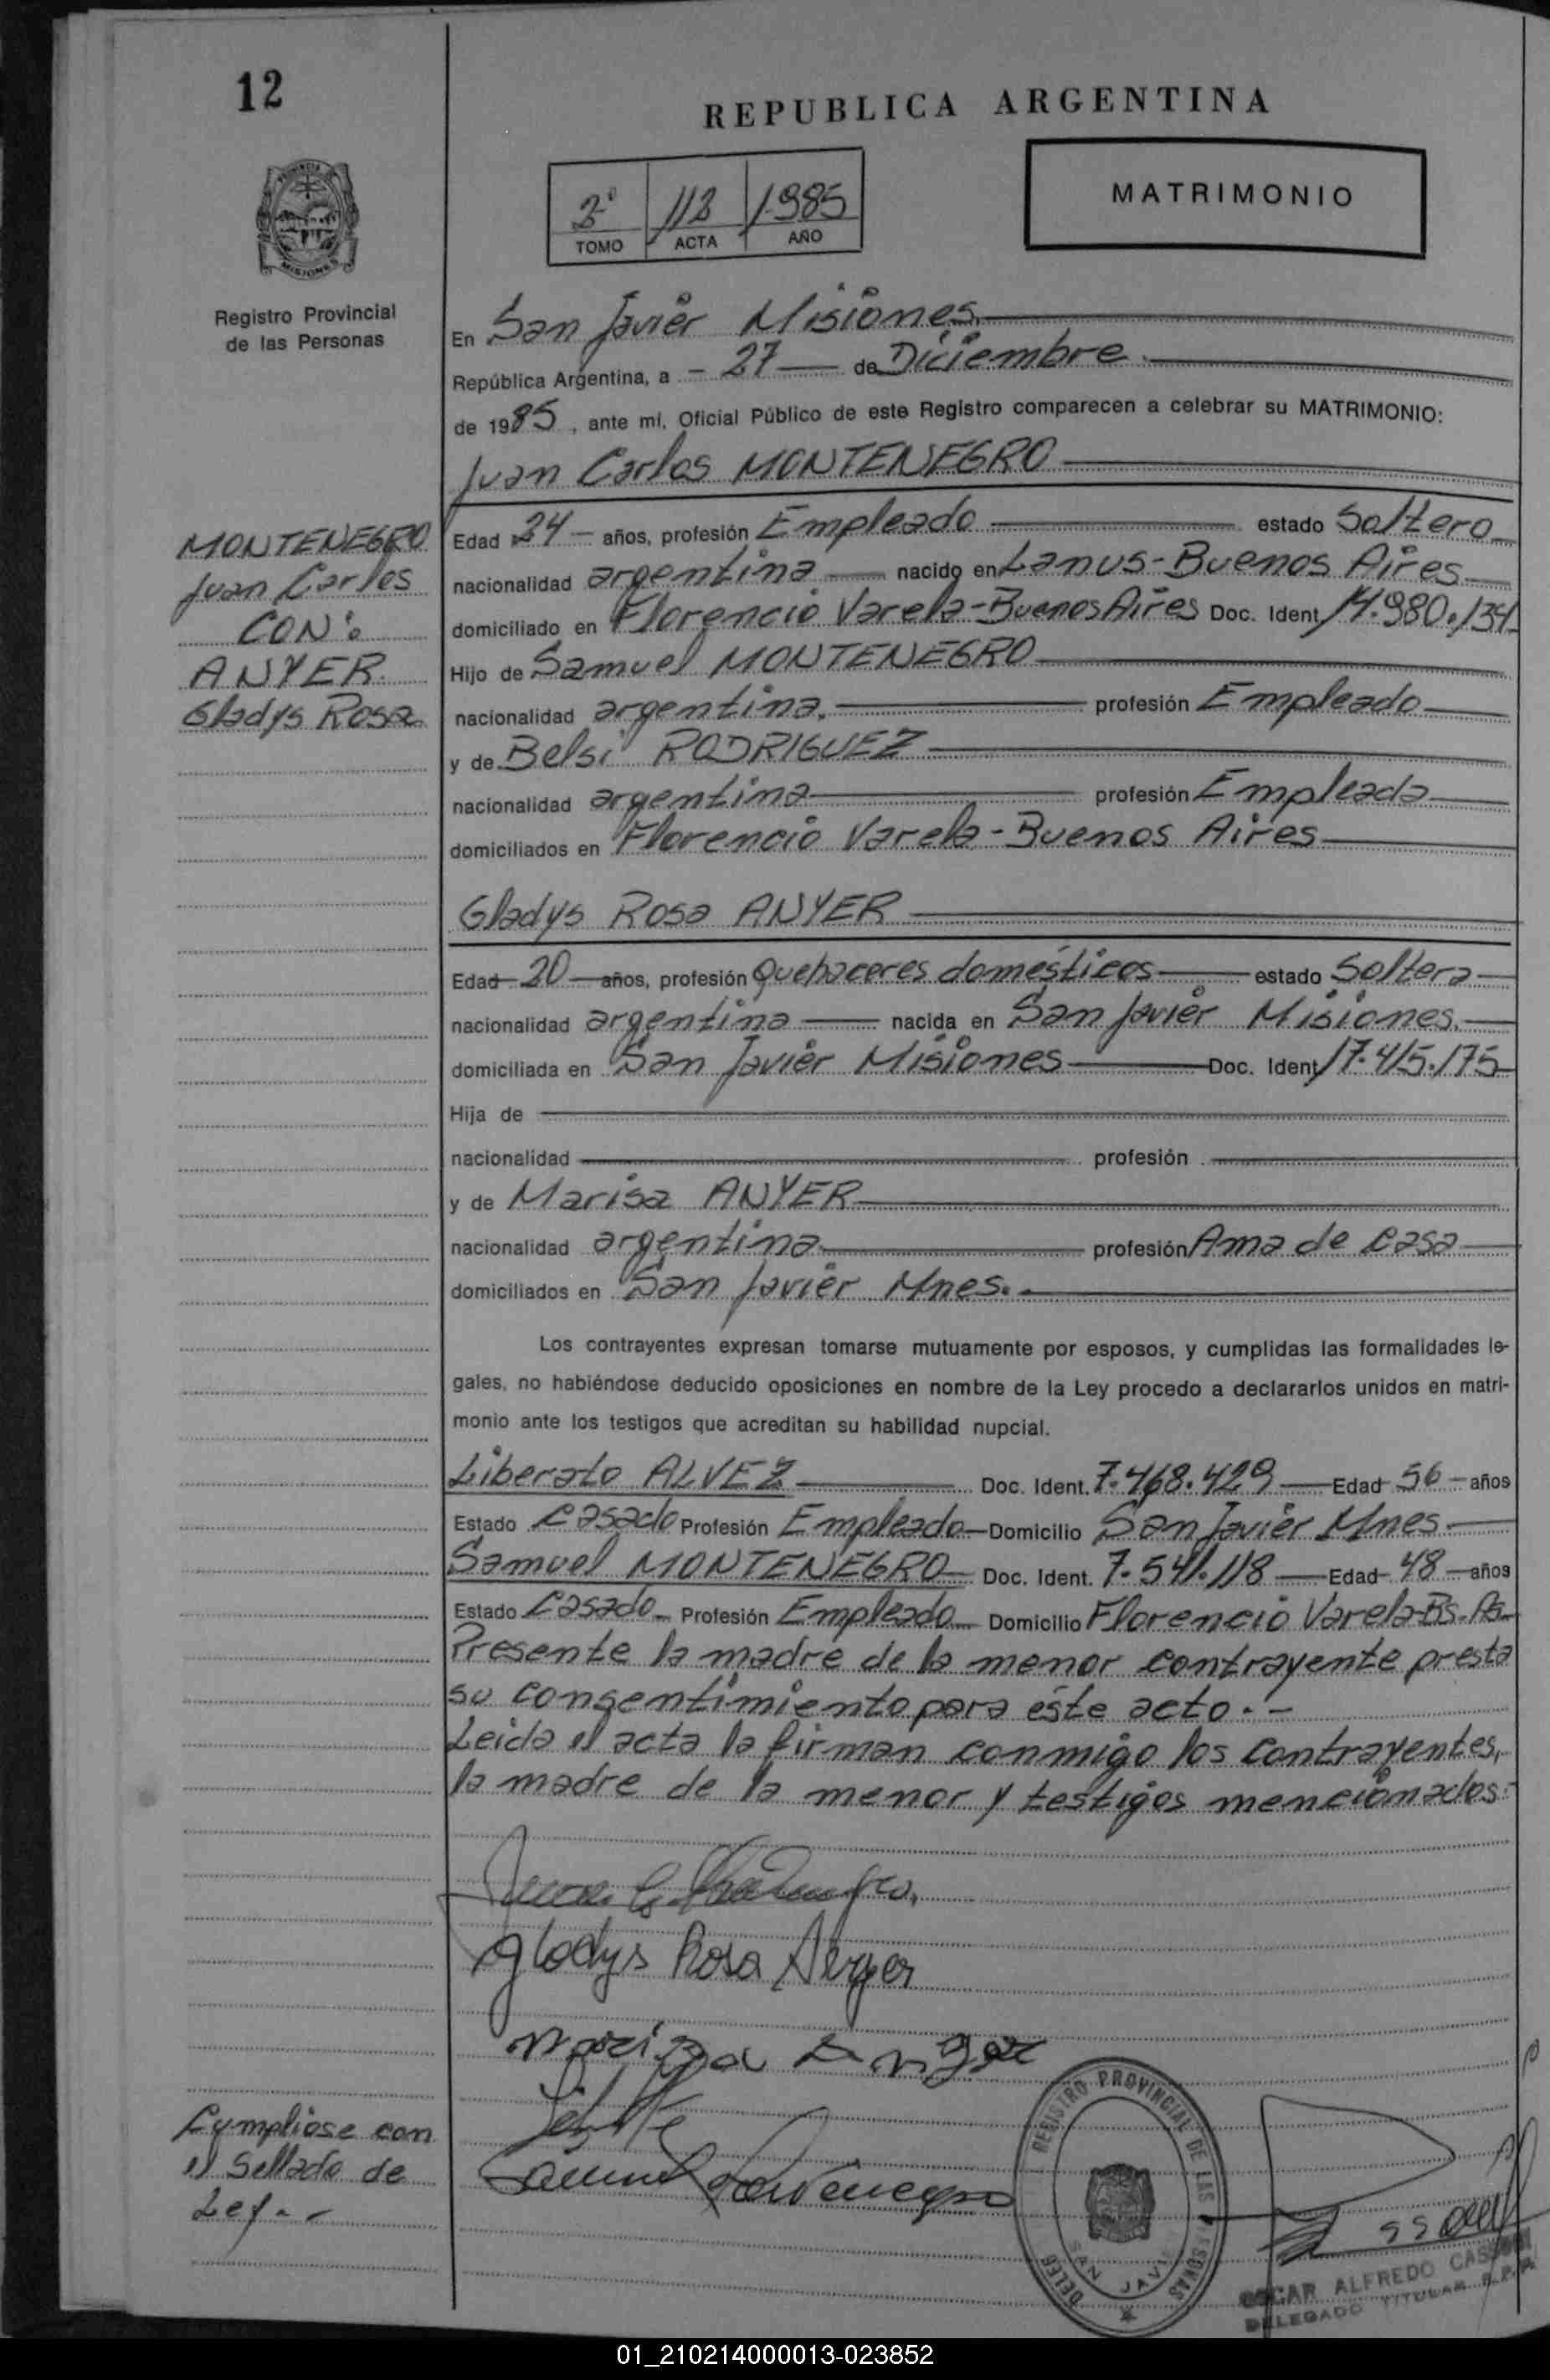 12
REPUBLICA ARGENTINA
PROVINCIA
MISIONES
2º 112 1985
TOMO ACTA AÑO
MATRIMONIO
Registro Provincial
de las Personas
En San Javier Misiones
República Argentina, a - 27 — de Diciembre
de 1985, ante mi, Oficial Público de este Registro comparecen a celebrar su MATRIMONIO:
Juan Carlos MONTENEGRO
MONTENEGRO
Juan Carlos
CON:
ANYER.
Gladys Rosa
Edad 24 — años, profesión Empleado estado Soltero
nacionalidad argentina nacido en Lanus-Buenos Aires
domiciliado en Florencio Varela-Buenos Aires Doc. Ident 14.980.134
Hijo de Samuel MONTENEGRO
nacionalidad argentina. profesión Empleado
y de Belsi RODRIGUEZ
nacionalidad argentina profesión Empleada
domiciliados en Florencio Varela-Buenos Aires
Gladys Rosa ANYER
Edad 20 años, profesión Quehaceres domésticos estado Soltera
nacionalidad argentina nacida en San Javier Misiones.
domiciliada en San Javier Misiones Doc. Ident 17.415.175
Hija de
nacionalidad profesión
y de Marisa ANYER
nacionalidad argentina profesión Ama de casa
domiciliados en San Javier Mnes.
Los contrayentes expresan tomarse mutuamente por esposos, y cumplidas las formalidades le-
gales, no habiéndose deducido oposiciones en nombre de la Ley procedo a declararlos unidos en matri-
monio ante los testigos que acreditan su habilidad nupcial.
Liberato ALVEZ Doc. Ident. 7.468.429 Edad 56 años
Estado Casado Profesión Empleado Domicilio San Javier Mnes.
Samuel MONTENEGRO Doc. Ident. 7.541.118 Edad 48 años
Estado Casado Profesión Empleado Domicilio Florencio Varela-Bs.As.
Presente la madre de la menor contrayente presta
su consentimiento para éste acto.-
Leida el acta la firman conmigo los contrayentes,
la madre de la menor y testigos mencionados.
Gladys Rosa Anyer
Cumpliose con
el Sellado de
Ley.-
Samuel Montenegro
REGISTRO PROVINCIAL DE LAS PERSONAS
DELEG
SAN JAVIER
OSCAR ALFREDO
DELEGADO TITULAR R.P.P.
01_210214000013-023852